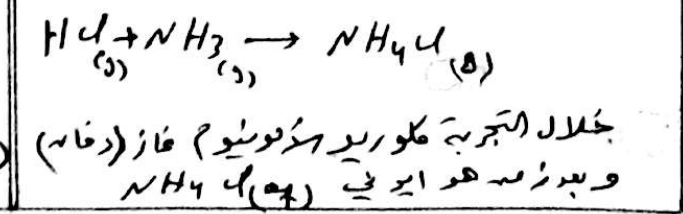 HCl + NH3 → NH4Cl
(g) (g) (s)
خلال التجربة كلوريد الأمونيوم غاز (دخان)
و بعد زمن هو ايوني NH4Cl(aq)